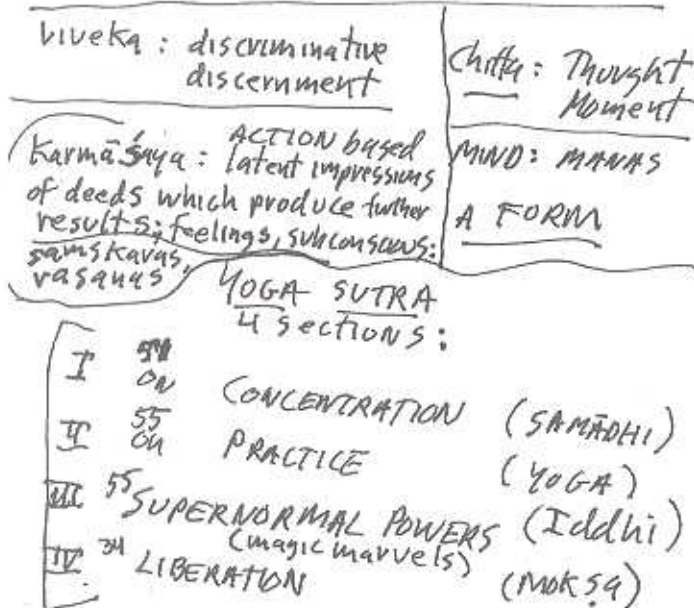 Viveka : discriminative
discernment
Chitta : Thought
Moment
Karmāśaya : ACTION based
latent impressions
of deeds which produce further
results; feelings, subconscious:
samskaras,
vasanas
MIND: MANAS
A FORM
YOGA SUTRA
4 sections:
I ON CONCENTRATION (SAMĀDHI)
II 55 ON PRACTICE (YOGA)
III 55 SUPERNORMAL POWERS (Iddhi)
(magic marvels)
IV 34 LIBERATION (MOKṢA)